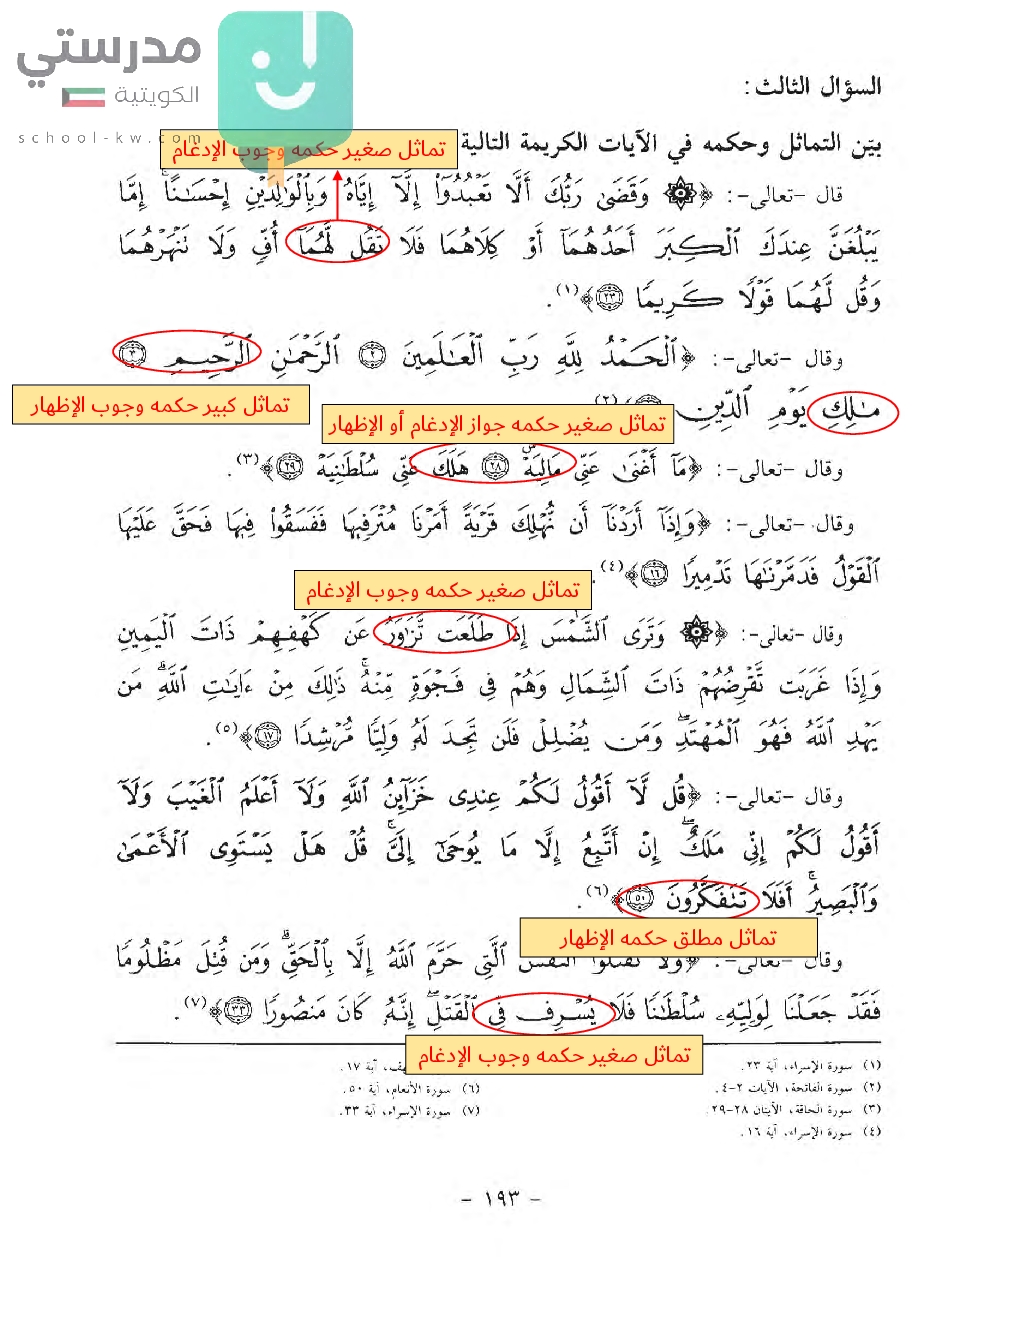 مدرستي
الكويتية
school-kw.com
السؤال الثالث:
بيّن التماثل وحكمه في الآيات الكريمة التالية
تماثل صغير حكمه وجوب الإدغام
قال -تعالى-: ﴿۞ وَقَضَىٰ رَبُّكَ أَلَّا تَعْبُدُوٓا۟ إِلَّآ إِيَّاهُ وَبِٱلْوَٰلِدَيْنِ إِحْسَٰنًا ۚ إِمَّا
يَبْلُغَنَّ عِندَكَ ٱلْكِبَرَ أَحَدُهُمَآ أَوْ كِلَاهُمَا فَلَا تَقُل لَّهُمَآ أُفٍّ وَلَا تَنْهَرْهُمَا
وَقُل لَّهُمَا قَوْلًا كَرِيمًا ٢٣﴾(١).
وقال -تعالى-: ﴿ٱلْحَمْدُ لِلَّهِ رَبِّ ٱلْعَٰلَمِينَ ٢ ٱلرَّحْمَٰنِ ٱلرَّحِيمِ ٣
تماثل كبير حكمه وجوب الإظهار
مَٰلِكِ يَوْمِ ٱلدِّينِ (٢)
تماثل صغير حكمه جواز الإدغام أو الإظهار
وقال -تعالى-: ﴿مَآ أَغْنَىٰ عَنِّى مَالِيَهْ ۜ ٢٨ هَلَكَ عَنِّى سُلْطَٰنِيَهْ ٢٩﴾(٣).
وقال -تعالى-: ﴿وَإِذَآ أَرَدْنَآ أَن نُّهْلِكَ قَرْيَةً أَمَرْنَا مُتْرَفِيهَا فَفَسَقُوا۟ فِيهَا فَحَقَّ عَلَيْهَا
ٱلْقَوْلُ فَدَمَّرْنَٰهَا تَدْمِيرًا ١٦﴾(٤).
تماثل صغير حكمه وجوب الإدغام
وقال -تعالى-: ﴿۞ وَتَرَى ٱلشَّمْسَ إِذَا طَلَعَت تَّزَٰوَرُ عَن كَهْفِهِمْ ذَاتَ ٱلْيَمِينِ
وَإِذَا غَرَبَت تَّقْرِضُهُمْ ذَاتَ ٱلشِّمَالِ وَهُمْ فِى فَجْوَةٍ مِّنْهُ ۚ ذَٰلِكَ مِنْ ءَايَٰتِ ٱللَّهِ ۗ مَن
يَهْدِ ٱللَّهُ فَهُوَ ٱلْمُهْتَدِ ۖ وَمَن يُضْلِلْ فَلَن تَجِدَ لَهُۥ وَلِيًّا مُّرْشِدًا ١٧﴾(٥).
وقال -تعالى-: ﴿قُل لَّآ أَقُولُ لَكُمْ عِندِى خَزَآئِنُ ٱللَّهِ وَلَآ أَعْلَمُ ٱلْغَيْبَ وَلَآ
أَقُولُ لَكُمْ إِنِّى مَلَكٌ ۖ إِنْ أَتَّبِعُ إِلَّا مَا يُوحَىٰٓ إِلَىَّ ۚ قُلْ هَلْ يَسْتَوِى ٱلْأَعْمَىٰ
وَٱلْبَصِيرُ ۚ أَفَلَا تَتَفَكَّرُونَ ٥٠﴾(٦).
تماثل مطلق حكمه الإظهار
وقال -تعالى-: ﴿وَلَا تَقْتُلُوا۟ ٱلنَّفْسَ ٱلَّتِى حَرَّمَ ٱللَّهُ إِلَّا بِٱلْحَقِّ ۗ وَمَن قُتِلَ مَظْلُومًا
فَقَدْ جَعَلْنَا لِوَلِيِّهِۦ سُلْطَٰنًا فَلَا يُسْرِف فِّى ٱلْقَتْلِ ۖ إِنَّهُۥ كَانَ مَنصُورًا ٣٣﴾(٧).
تماثل صغير حكمه وجوب الإدغام
(١) سورة الإسراء، آية ٢٣.
(٢) سورة الفاتحة، الآيات ٢-٤.
(٣) سورة الحاقة، الآيتان ٢٨-٢٩.
(٤) سورة الإسراء، آية ١٦.
آية ١٧.
(٦) سورة الأنعام، آية ٥٠.
(٧) سورة الإسراء، آية ٣٣.
- ١٩٣ -